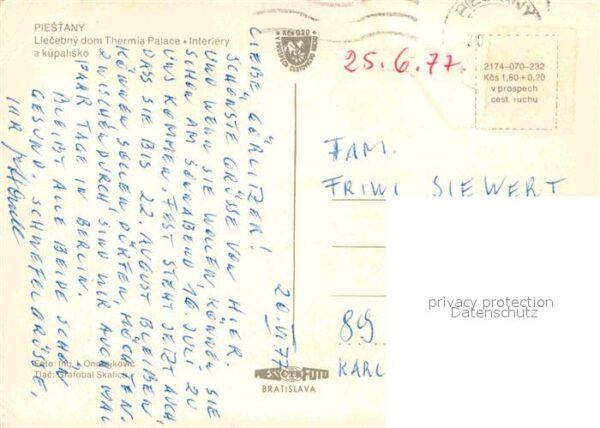 PIEŠŤANY
Liečebný dom Thermia Palace • Interiéry
a kúpalisko
LIEBE GÖRLITZER!
SCHÖNSTE GRÜSSE VON HIER.
UND WENN SIE WOLLEN, KÖNNEN SIE
SCHON AM SONNABEND 16. JULI ZU
UNS KOMMEN. FEST STEHT JETZT AUCH,
DASS SIE BIS 22. AUGUST BLEIBEN
KÖNNEN, SOLLEN, DÜRFEN, MÖCHTEN.
ZWISCHENDURCH SIND WIR AUCH MAL
PAAR TAGE IN BERLIN.
BLEIBT ALLE BEIDE SCHÖN
GESUND. SCHWEFELGRÜSSE,
IHR
20. VI. 77
Foto: Ing. J. Ondrejkovič
Tlač: Grafobal Skalica
Kčs 0,20
V PROSPECH CESTOVNÉHO RUCHU
PIEŠŤANY
25.6.77
2174-070-232
Kčs 1,80 + 0,20
v prospech
cest. ruchu
FAM.
FRIWI SIEWERT
89
KARL
PRESSFOTO
ČTK
BRATISLAVA
privacy protection
Datenschutz